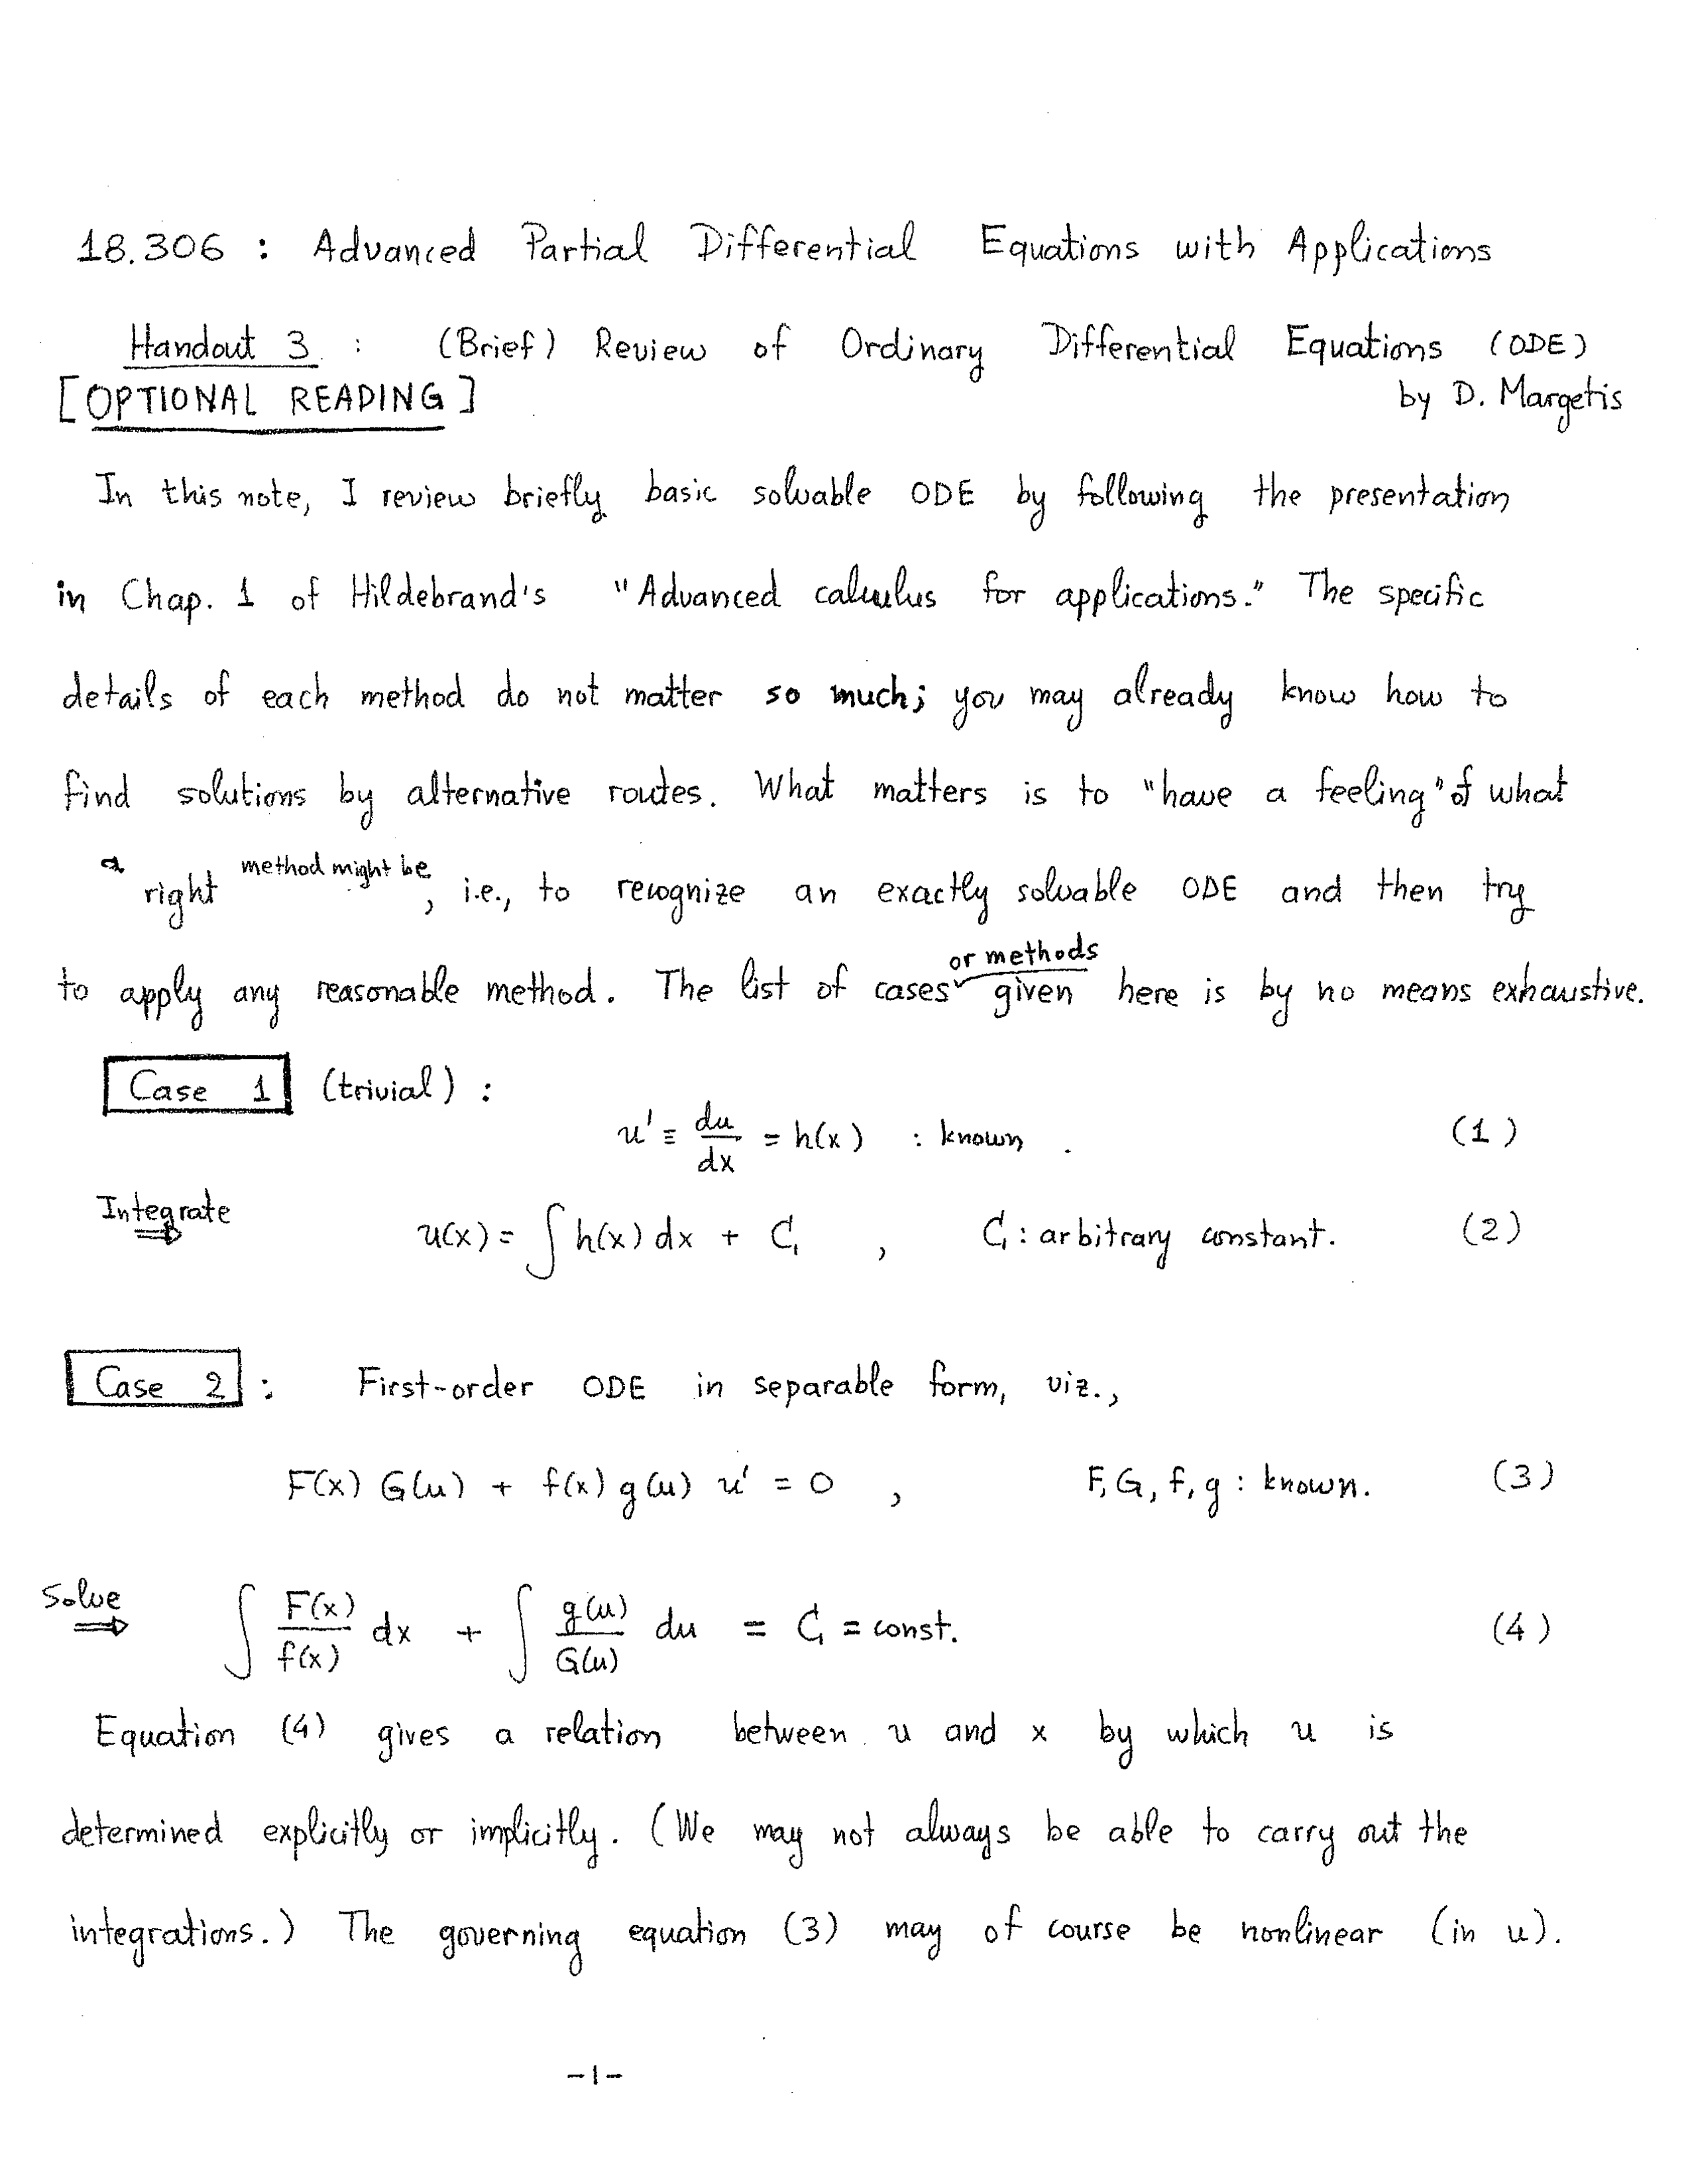 18.306 : Advanced Partial Differential Equations with Applications
Handout 3 : (Brief) Review of Ordinary Differential Equations (ODE)
[OPTIONAL READING]
by D. Margetis
In this note, I review briefly basic solvable ODE by following the presentation
in Chap. 1 of Hildebrand's "Advanced calculus for applications." The specific
details of each method do not matter so much; you may already know how to
find solutions by alternative routes. What matters is to "have a feeling" of what
a right method might be, i.e., to recognize an exactly solvable ODE and then try
to apply any reasonable method. The list of cases or methods given here is by no means exhaustive.
Case 1 (trivial) :
u' ≡ du/dx = h(x) : known . (1)
Integrate ⇒ u(x) = ∫ h(x) dx + C₁ , C₁ : arbitrary constant. (2)
Case 2 : First-order ODE in separable form, viz.,
F(x) G(u) + f(x) g(u) u' = 0 , F, G, f, g : known. (3)
Solve ⇒ ∫ F(x)/f(x) dx + ∫ g(u)/G(u) du = C₁ = const. (4)
Equation (4) gives a relation between u and x by which u is
determined explicitly or implicitly. (We may not always be able to carry out the
integrations.) The governing equation (3) may of course be nonlinear (in u).
-1-